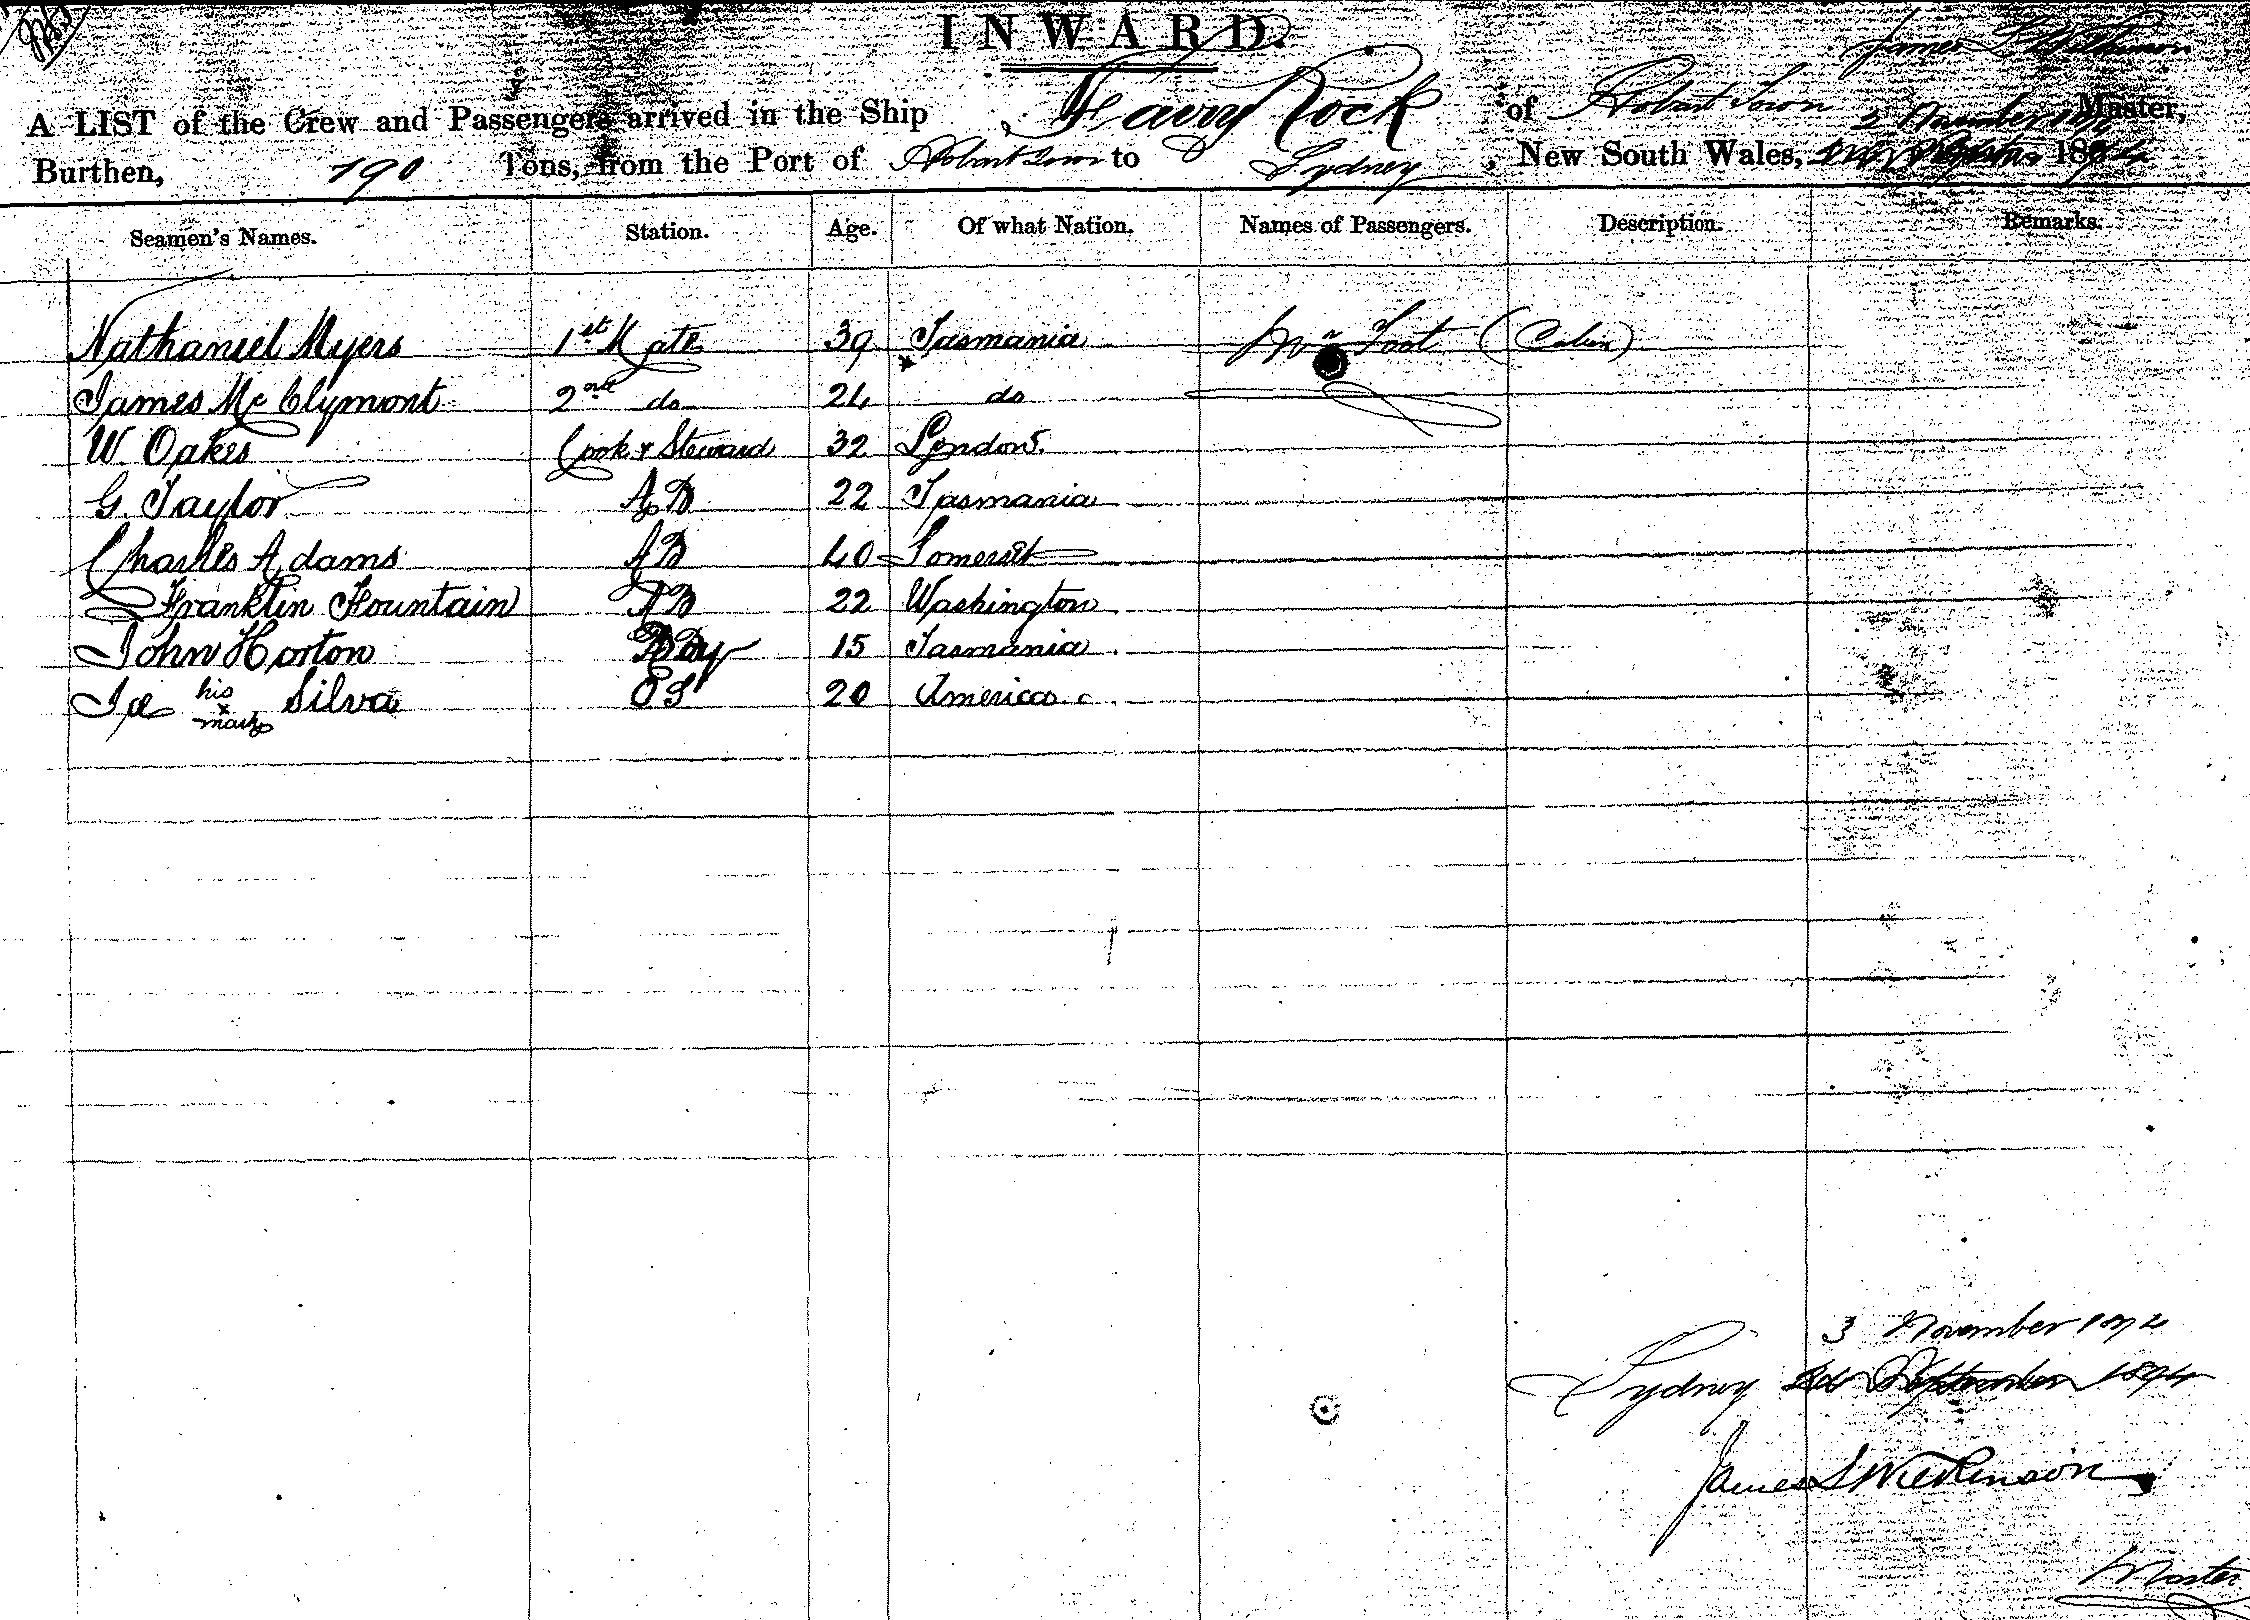 INWARD.
A LIST of the Crew and Passengers arrived in the Ship Harry Rock of Hobart Town James S Wilkinson Master,
Burthen, 190 Tons, from the Port of Hobart Town to Sydney, New South Wales, 2 November 187
Seamen's Names. Station. Age. Of what Nation. Names of Passengers. Description. Remarks.
Nathaniel Myers 1st Mate 39 Tasmania Foot (Cabin)
James Mc Clymont 2nd do 24 do
W. Oakes Cook & Steward 32 London
G. Taylor AB 22 Tasmania
Charles Adams AB 40 Somerset
Franklin Fountain AB 22 Washington
John Horton Boy 15 Tasmania
his
Joe x Silva OS 20 America
mark
3 November
Sydney September
James S Wilkinson
Master